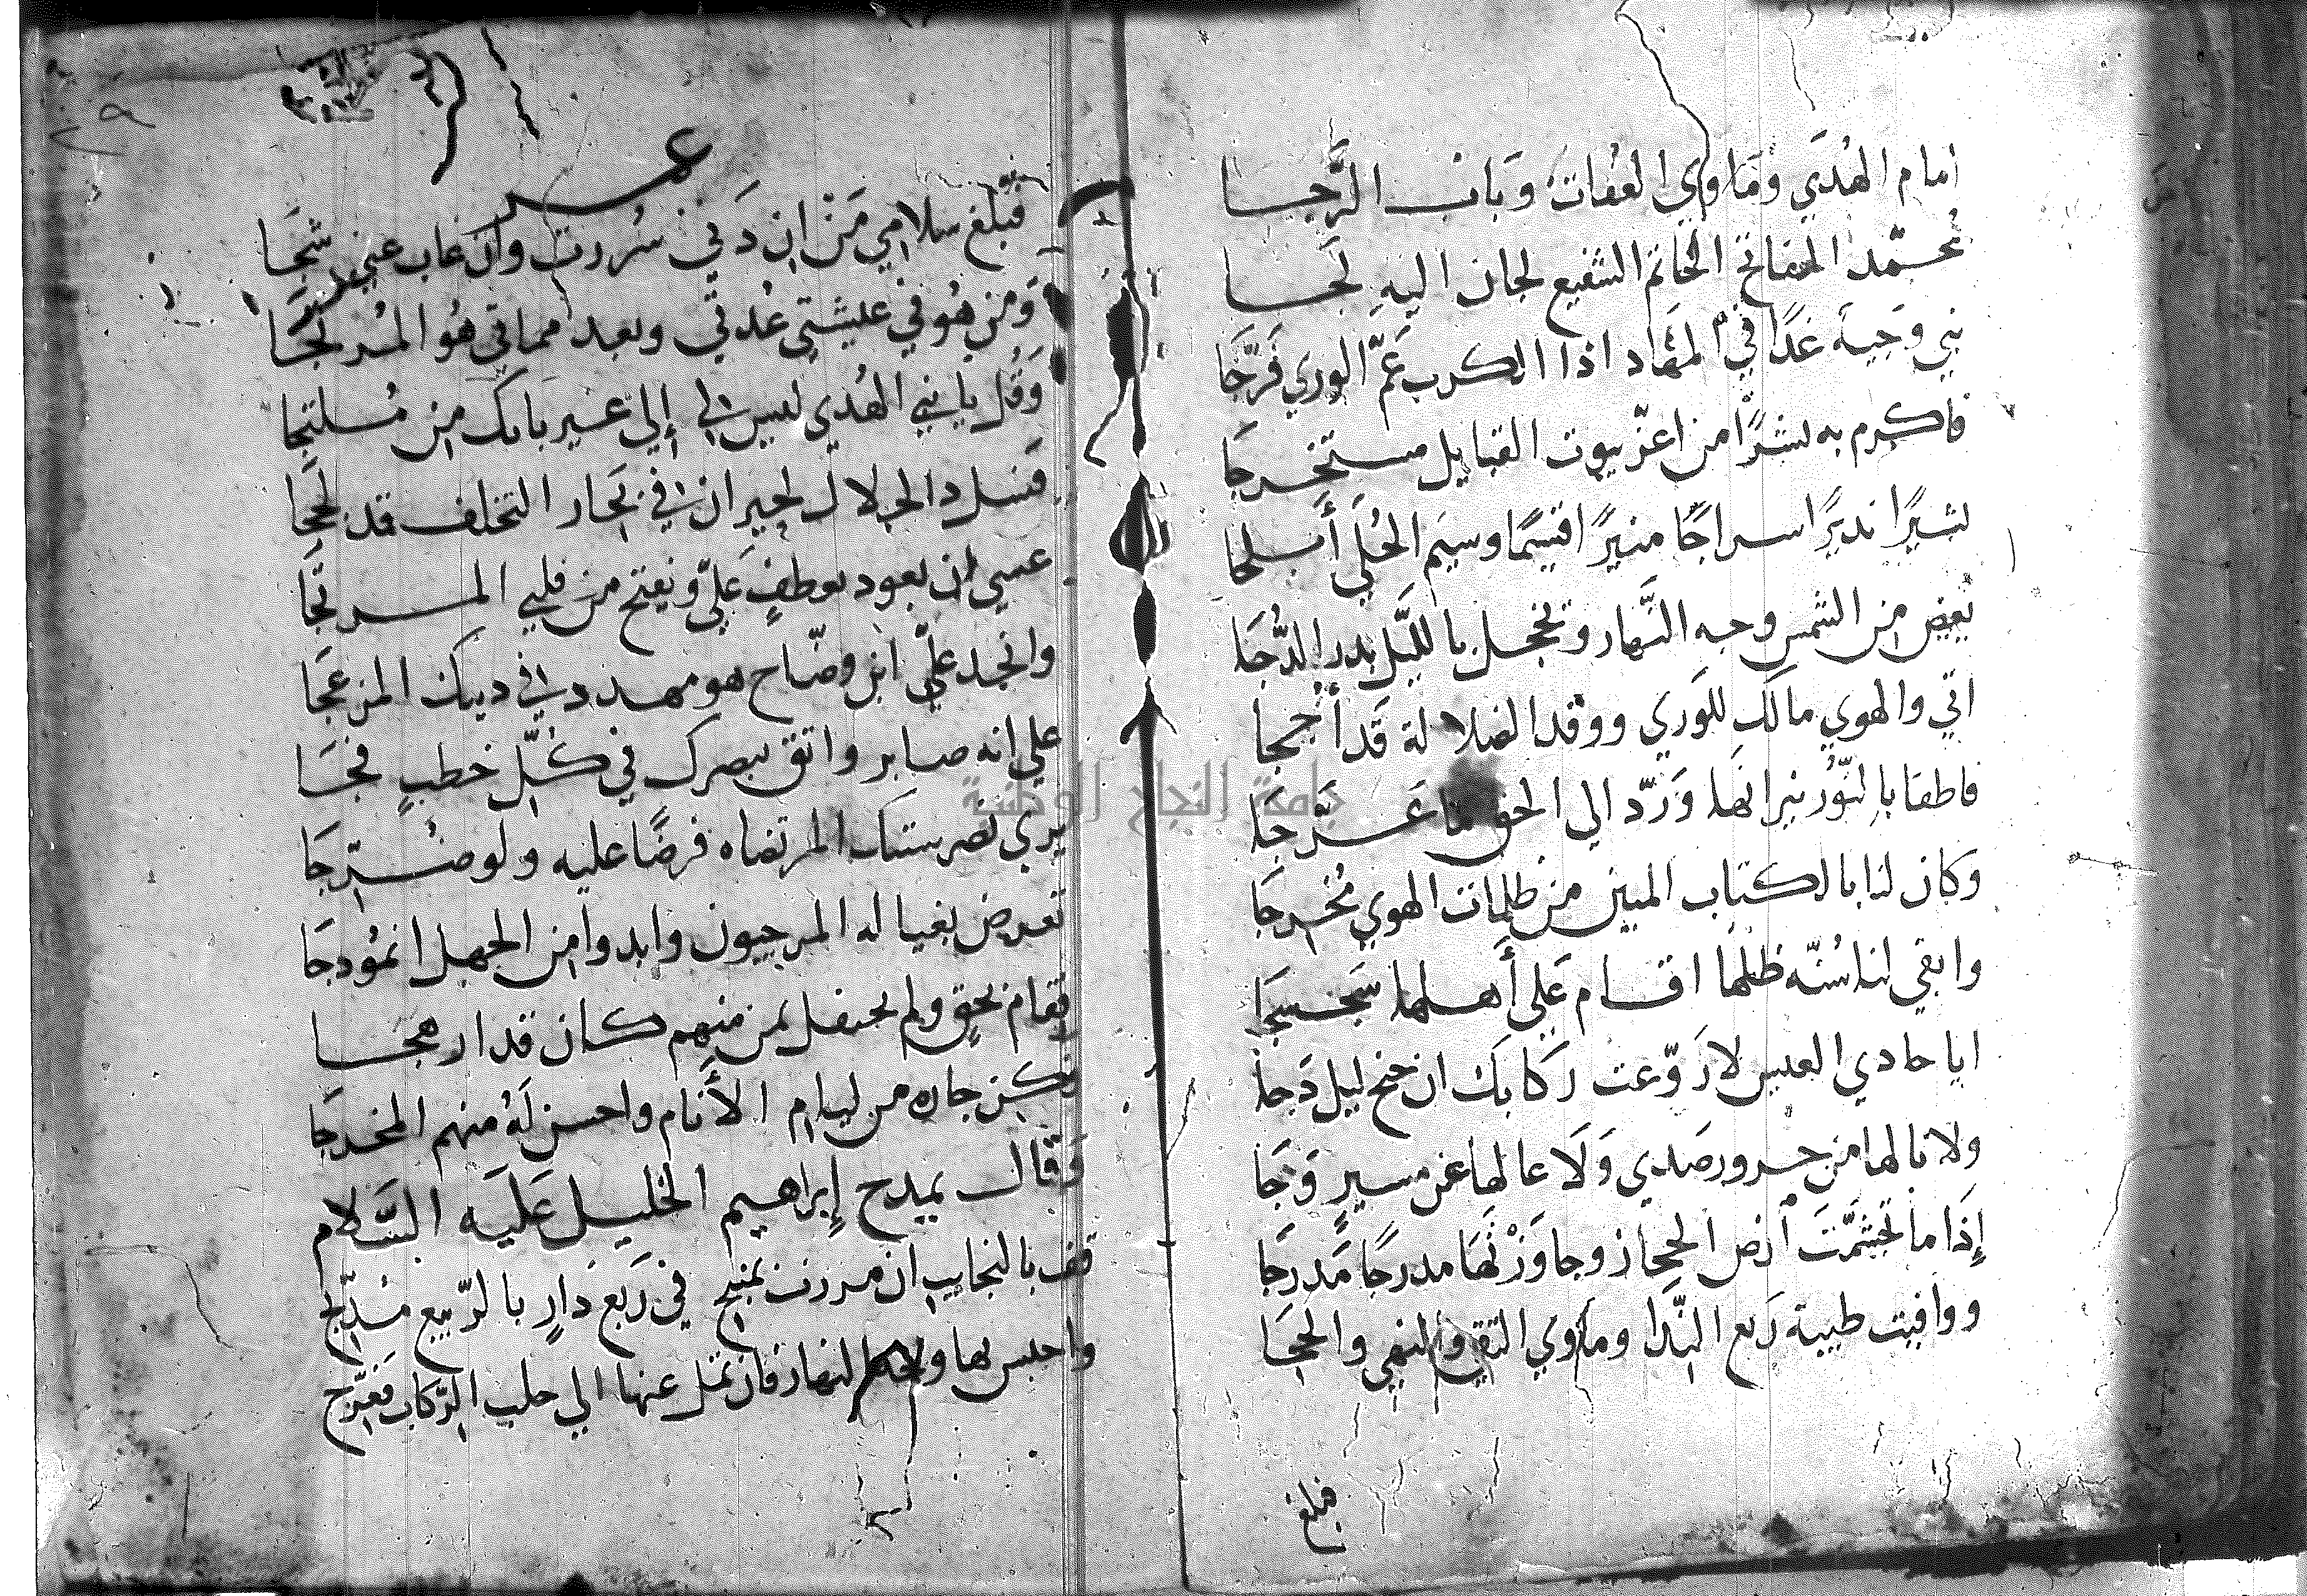 امام الهُدَي ومَاوي العُفات وبَاب الرَّجا
مُحمّد الفاتح الخاتم الشفيع لجان اليهِ لَجا
نبي وَجيه غدًا في المعَاد اذا الكرب عَمّ الوري فَرَّجَا
فاكرم به بشرًا من اعزّ بيوت القبايل مستخرجَا
بشيرًا نديرًا سراجًا منيرًا قسيمًا وسيَم الحُلَي أبلجا
يغيض من الشمس وجه النَّهار وتخجل بالليَّل بدر الدُّجَا
اتي والهوي مالك للوَري ووقد الضلالة قَد أججا
فاطفا بالنّور نيرانهَا وَرَدّ الي الحق ما عَرَّجَا
وكان لنا بالكتاب المبين من ظلمات الهوي مُخرجَا
وابقي لنا سُنّه ظلها اقام عَلي أهلها سَجسجَا
ايا حادي العيس لا رَوّعت ركابك ان جنح ليل دَجا
ولا نالها من حرور صَدي وَلَا عالها عن مسيرٍ وَجَا
إذَا ما تجشمَّتَ أرض الحجاز وجاوَزْتَهَا مدرجًا مَدرَجَا
ووافيت طيبة رَبع النَّدا وماوي التقي والنهي والحِجَا
فبلغ
عـر
فبلغ سلامي مَنْ ان دَني سُررت وان غاب عني شجَا
وَمن هُو في عيشتي عُدتي وبعد مماتي هُو المُرتجَا
وَقُل يا نبي الهُدي ليس لي إلي غير بابك من مُلتجا
فسل دا الجلال لحيران في بحَار التخلف قد لججَا
عسي ان يعود بعطفٍ عَليّ ويفتح من قلبي المرتجَا
وانجد عليّ ابن وضّاح هو مهدد في دينك المزعجَا
علي انه صابر واثق بنصرك في كُلّ خطبٍ فجَا
يري نصر سنتك المرتضاه فرضًا عليه ولو ضُرّجَا
تعرض بغيا له المرجيون وابدوا من الجهل انمُودجَا
فقام بحقٍ ولم يحتفل بمن منهم كان قد ارهجا
فكن جاره من ليام الأنام واحسن لهُ منهم المخرجَا
وَقَال يمدح إبراهيم الخليل عَليَه السَّلام
قف بالنجايب ان مررت بمنبج في رَبع دارٍ بالرّبيع مُدبّج
واحبس بها ولو النهار فان تمل عنها الي حلب الرّكاب فعرّج